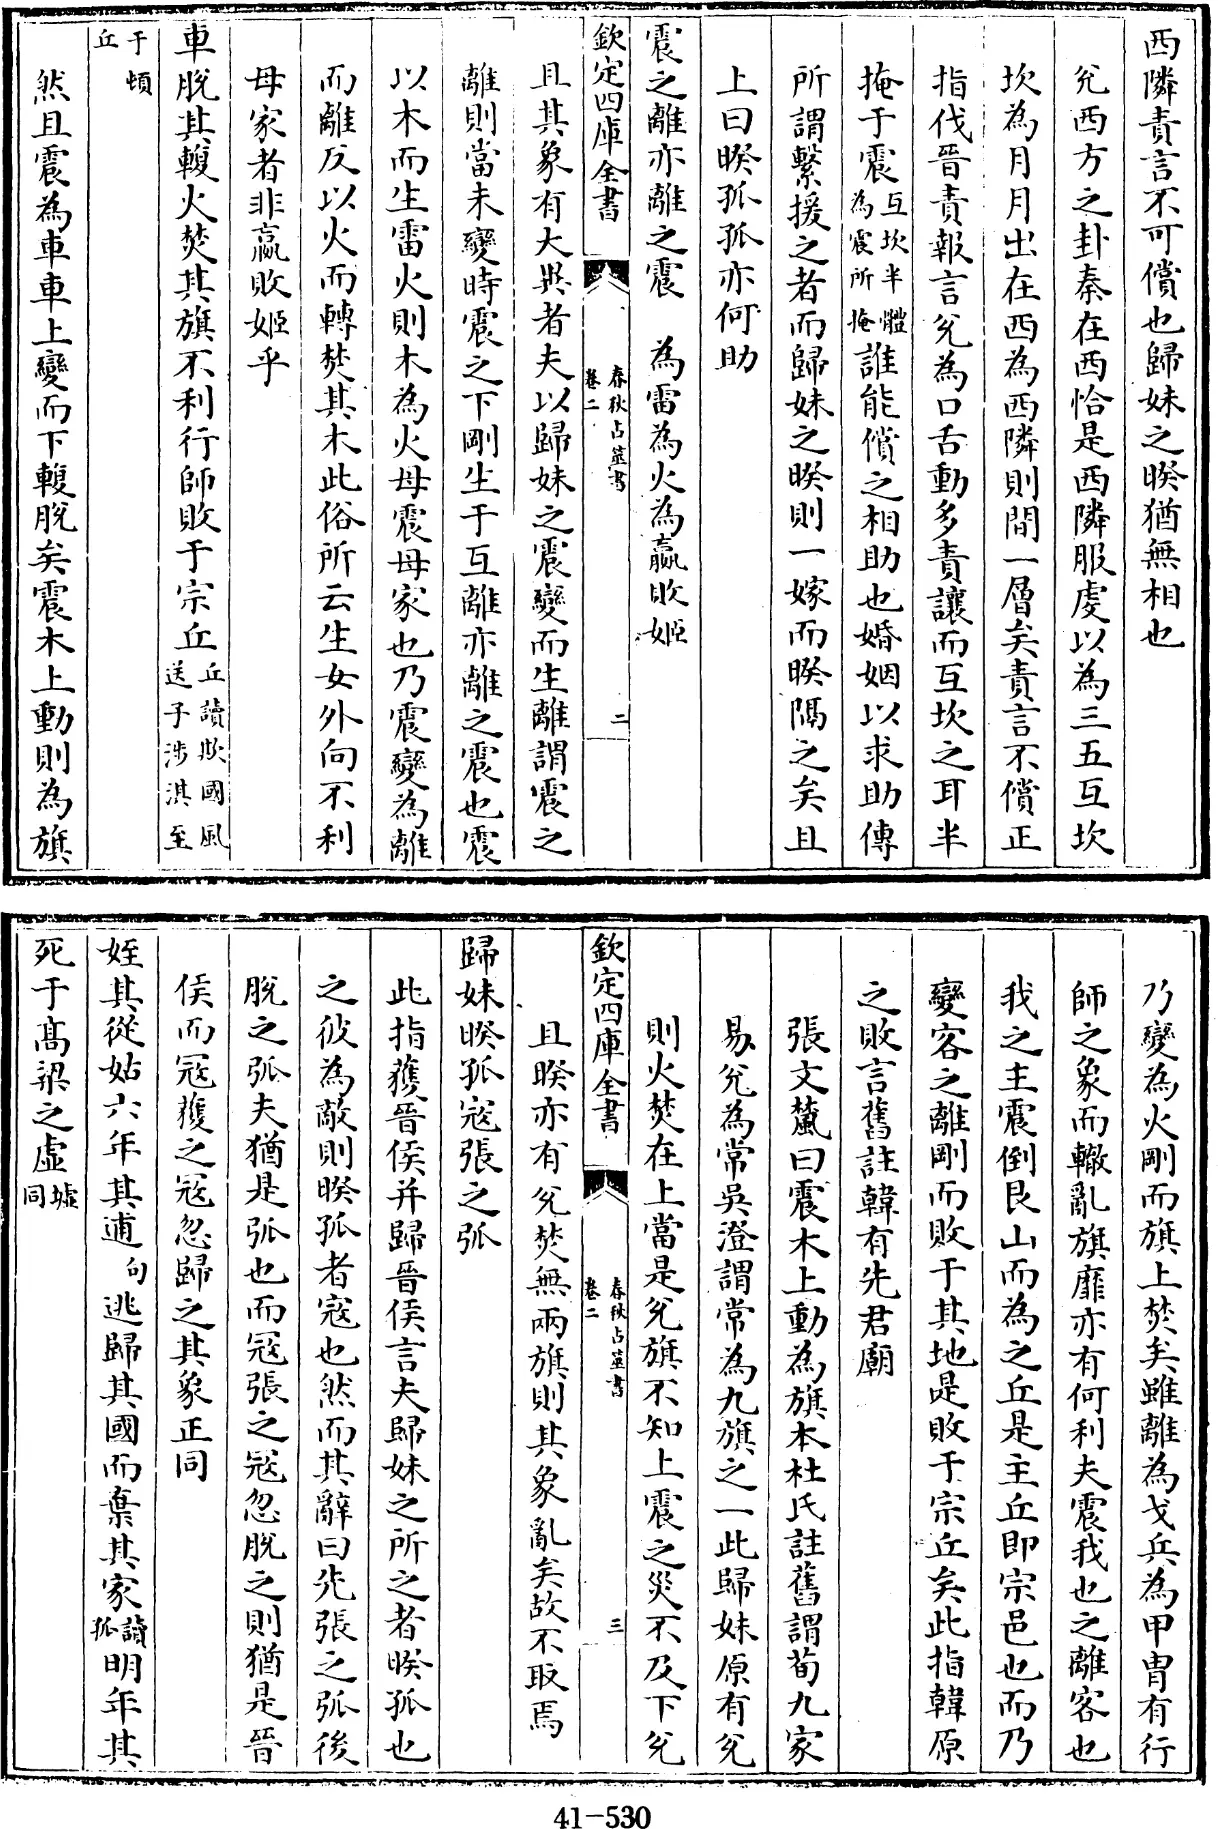 西隣責言不可償也歸妹之睽猶無相也
兌西方之卦秦在西恰是西隣服虔以為三五互坎
坎為月月出在西為西隣則間一層矣責言不償正
指伐晉責報言兌為口舌動多責讓而互坎之耳半
掩于震互坎半體為震所掩誰能償之相助也婚姻以求助傳
所謂繫援之者而歸妹之睽則一嫁而睽隔之矣且
上曰睽孤孤亦何助
震之離亦離之震 為雷為火為嬴敗姬
欽定四庫全書 春秋占筮書 卷二 二
且其象有大異者夫以歸妹之震變而生離謂震之
離則當未變時震之下剛生于互離亦離之震也震
以木而生雷火則木為火母震母家也乃震變為離
而離反以火而轉焚其木此俗所云生女外向不利
母家者非嬴敗姬乎
車脫其輹火焚其旗不利行師敗于宗丘丘讀欺國風送子涉淇至
于頓丘
然且震為車車上變而下輹脫矣震木上動則為旗
乃變為火剛而旗上焚矣雖離為戈兵為甲冑有行
師之象而轍亂旗靡亦有何利夫震我也之離客也
我之主震倒艮山而為之丘是主丘即宗邑也而乃
變客之離剛而敗于其地是敗于宗丘矣此指韓原
之敗言舊註韓有先君廟
張文蘆曰震木上動為旗本杜氏註舊謂荀九家
易兌為常吳澄謂常為九旗之一此歸妹原有兌
則火焚在上當是兌旗不知上震之災不及下兌
欽定四庫全書 春秋占筮書 卷二 三
且睽亦有兌焚無兩旗則其象亂矣故不取焉
歸妹睽孤寇張之弧
此指獲晉侯并歸晉侯言夫歸妹之所之者睽孤也
之彼為敵則睽孤者寇也然而其辭曰先張之弧後
脫之弧夫猶是弧也而寇張之寇忽脫之則猶是晉
侯而寇獲之寇忽歸之其象正同
姪其從姑六年其逋句逃歸其國而棄其家讀孤明年其
死于高梁之虛墟同
41-530